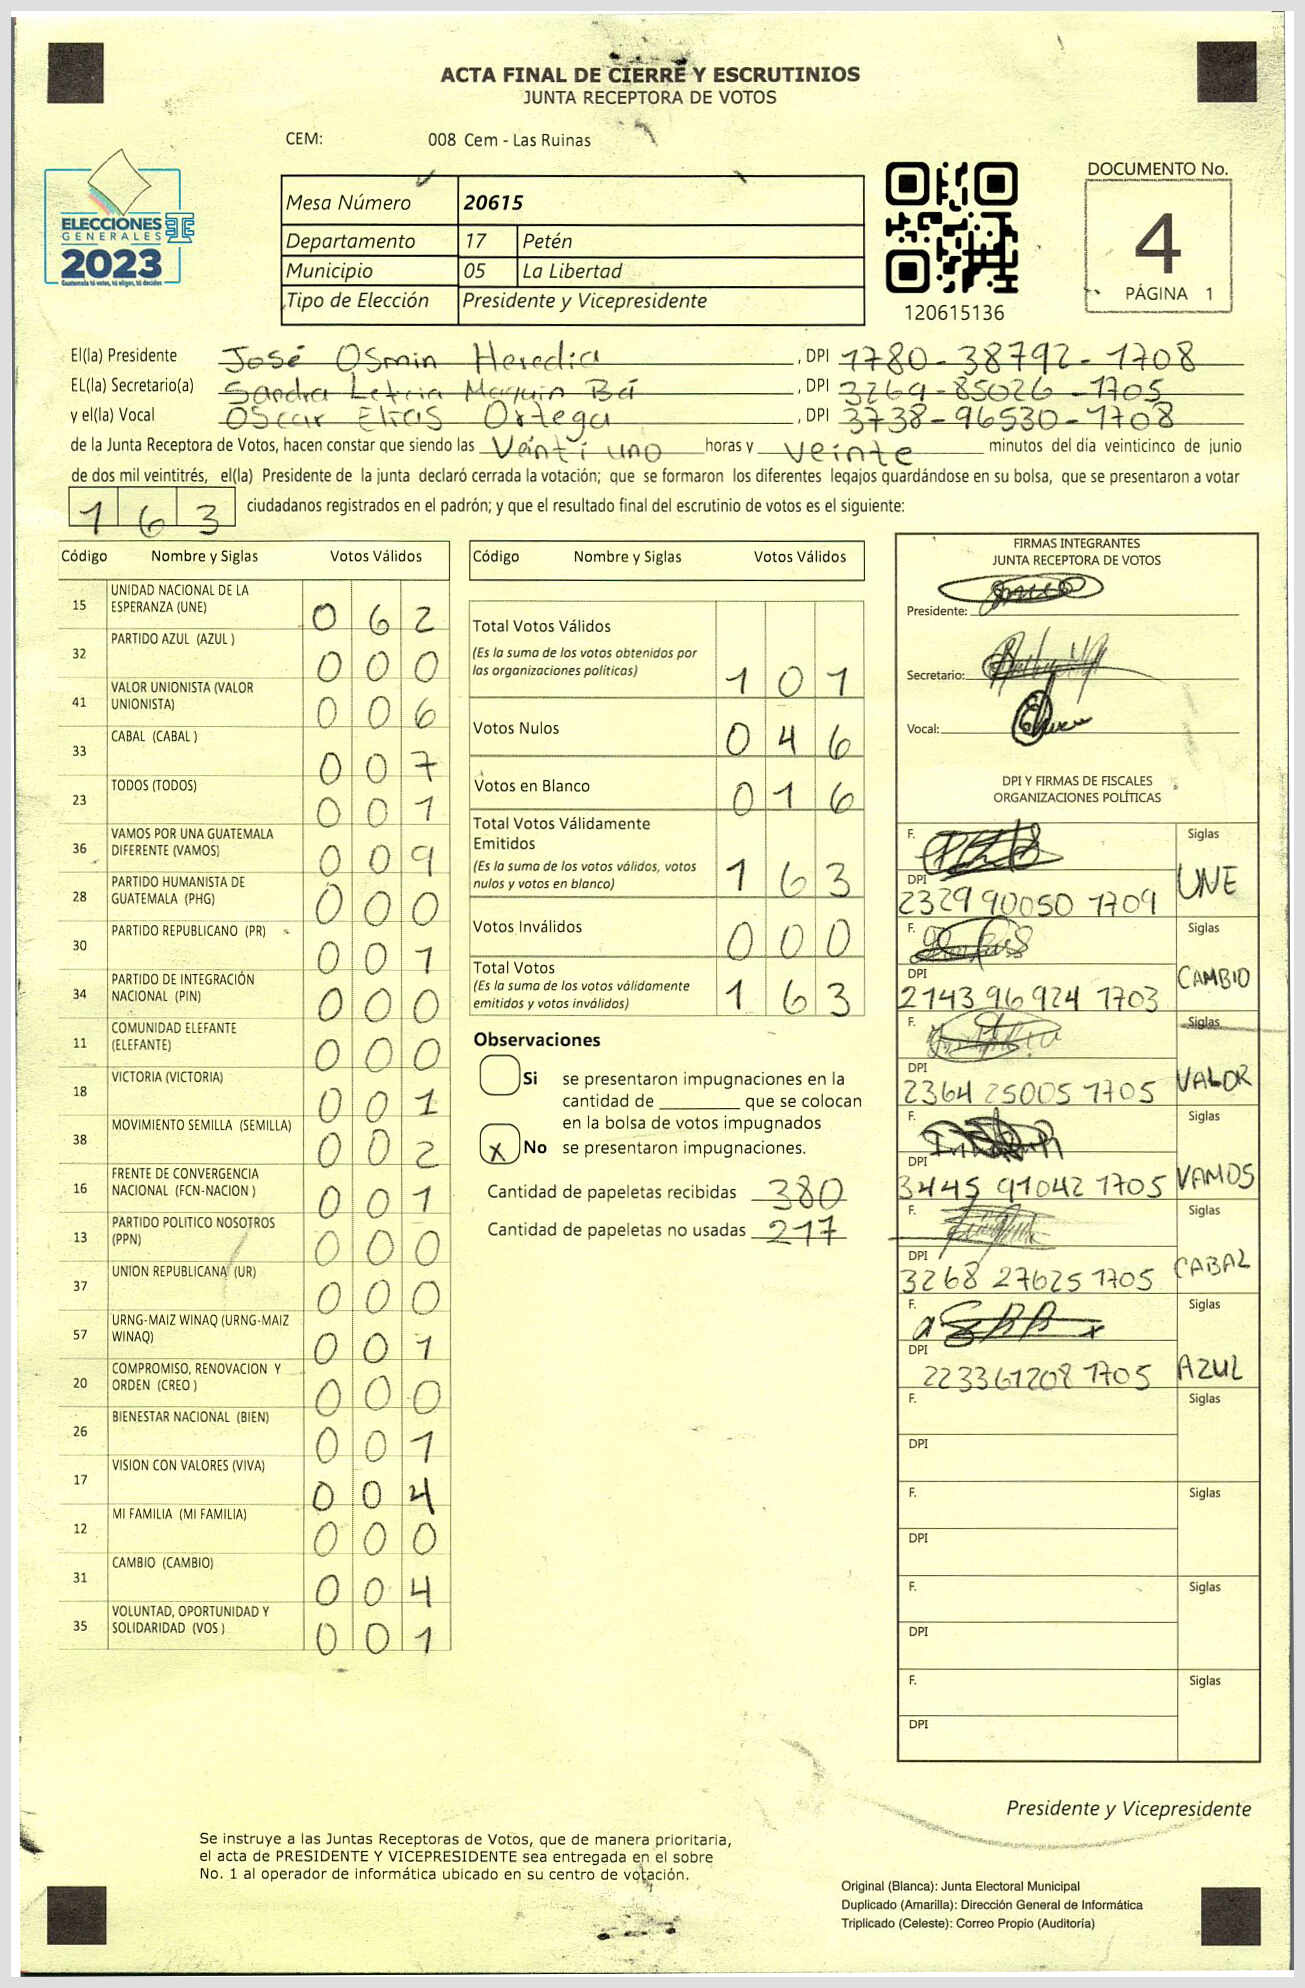 ACTA FINAL DE CIERRE Y ESCRUTINIOS
JUNTA RECEPTORA DE VOTOS
CEM: 008 Cem - Las Ruinas
ELECCIONES
GENERALES
2023
Guatemala tú votas, tú eliges, tú decides
Mesa Número 20615
Departamento 17 Petén
Municipio 05 La Libertad
Tipo de Elección Presidente y Vicepresidente
120615136
DOCUMENTO No.
4
PÁGINA 1
El(la) Presidente José Osmin Heredia, DPI 1780-38792-1708
EL(la) Secretario(a) Sandra Leticia Maquin Bá, DPI 3269-85026-1705
y el(la) Vocal Oscar Elias Ortega, DPI 3738-96530-1708
de la Junta Receptora de Votos, hacen constar que siendo las Veinti uno horas y veinte minutos del día veinticinco de junio
de dos mil veintitrés, el(la) Presidente de la junta declaró cerrada la votación; que se formaron los diferentes legajos guardándose en su bolsa, que se presentaron a votar
163 ciudadanos registrados en el padrón; y que el resultado final del escrutinio de votos es el siguiente:
Código Nombre y Siglas Votos Válidos
15 UNIDAD NACIONAL DE LA ESPERANZA (UNE) 062
32 PARTIDO AZUL (AZUL ) 000
41 VALOR UNIONISTA (VALOR UNIONISTA) 006
33 CABAL (CABAL ) 007
23 TODOS (TODOS) 001
36 VAMOS POR UNA GUATEMALA DIFERENTE (VAMOS) 009
28 PARTIDO HUMANISTA DE GUATEMALA (PHG) 000
30 PARTIDO REPUBLICANO (PR) 001
34 PARTIDO DE INTEGRACIÓN NACIONAL (PIN) 000
11 COMUNIDAD ELEFANTE (ELEFANTE) 000
18 VICTORIA (VICTORIA) 001
38 MOVIMIENTO SEMILLA (SEMILLA) 002
16 FRENTE DE CONVERGENCIA NACIONAL (FCN-NACION ) 001
13 PARTIDO POLITICO NOSOTROS (PPN) 000
37 UNION REPUBLICANA (UR) 000
57 URNG-MAIZ WINAQ (URNG-MAIZ WINAQ) 001
20 COMPROMISO, RENOVACION Y ORDEN (CREO ) 000
26 BIENESTAR NACIONAL (BIEN) 001
17 VISION CON VALORES (VIVA) 004
12 MI FAMILIA (MI FAMILIA) 000
31 CAMBIO (CAMBIO) 004
35 VOLUNTAD, OPORTUNIDAD Y SOLIDARIDAD (VOS ) 001
Código Nombre y Siglas Votos Válidos
Total Votos Válidos 101
(Es la suma de los votos obtenidos por
las organizaciones políticas)
Votos Nulos 046
Votos en Blanco 016
Total Votos Válidamente
Emitidos 163
(Es la suma de los votos válidos, votos
nulos y votos en blanco)
Votos Inválidos 000
Total Votos 163
(Es la suma de los votos válidamente
emitidos y votos inválidos)
Observaciones
Si se presentaron impugnaciones en la
cantidad de ________ que se colocan
en la bolsa de votos impugnados
X No se presentaron impugnaciones.
Cantidad de papeletas recibidas 380
Cantidad de papeletas no usadas 217
FIRMAS INTEGRANTES
JUNTA RECEPTORA DE VOTOS
Presidente:
Secretario:
Vocal:
DPI Y FIRMAS DE FISCALES
ORGANIZACIONES POLÍTICAS
F. Siglas
DPI 2329 90050 1709 UNE
F. Siglas
DPI 2143 96924 1703 CAMBIO
F. Siglas
DPI 2364 25005 1705 VALOR
F. Siglas
DPI 3445 91042 1705 VAMOS
F. Siglas
DPI 3268 27625 1705 CABAL
F. Siglas
DPI 2233612081705 AZUL
F. Siglas
DPI
F. Siglas
DPI
F. Siglas
DPI
F. Siglas
DPI
Presidente y Vicepresidente
Se instruye a las Juntas Receptoras de Votos, que de manera prioritaria,
el acta de PRESIDENTE Y VICEPRESIDENTE sea entregada en el sobre
No. 1 al operador de informática ubicado en su centro de votación.
Original (Blanca): Junta Electoral Municipal
Duplicado (Amarilla): Dirección General de Informática
Triplicado (Celeste): Correo Propio (Auditoría)